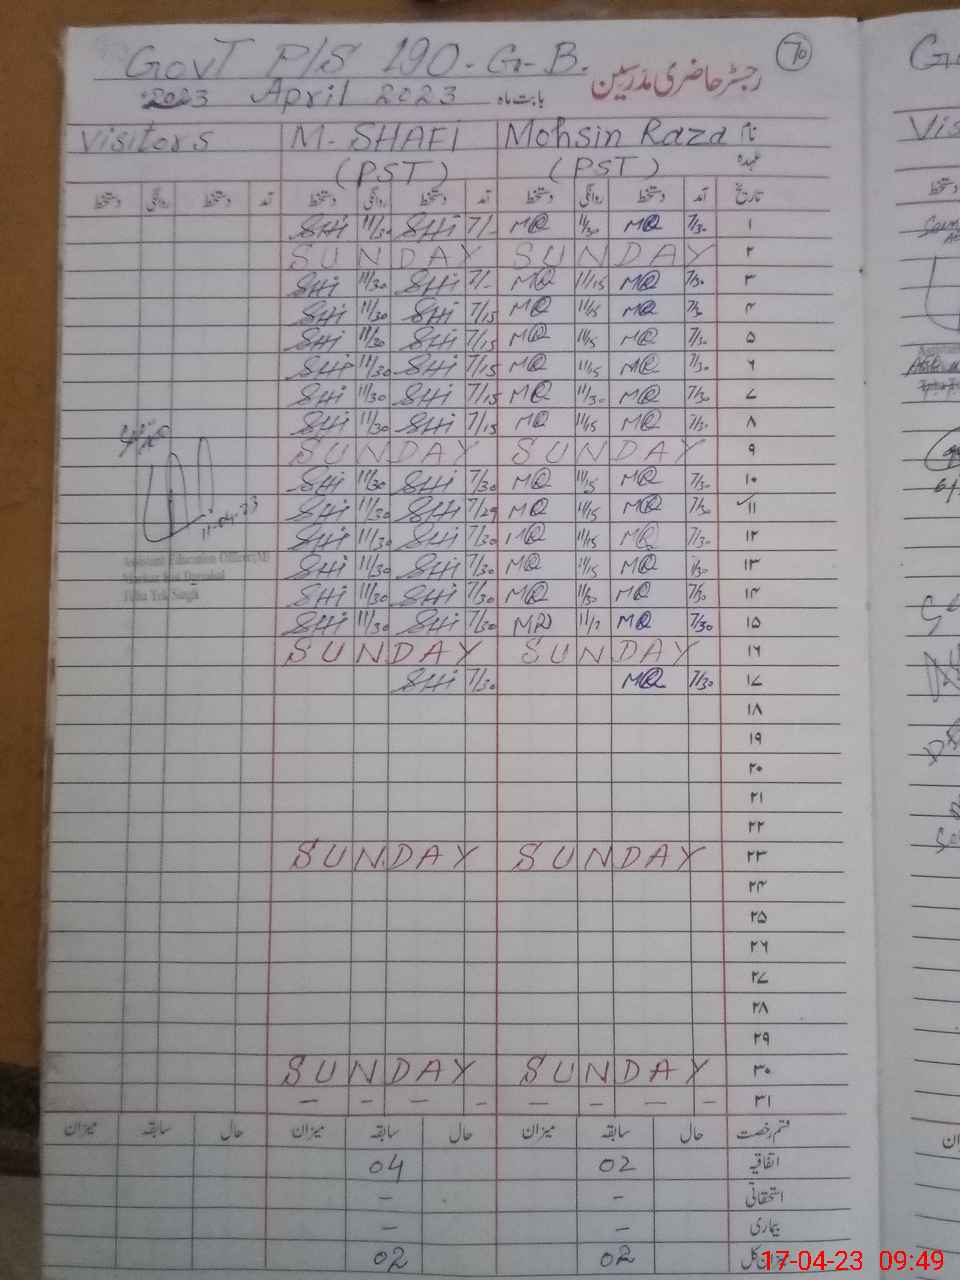 GovT P/S 190-G-B. رجسٹر حاضری مدرسین 70
2023 April 2023 بابت ماہ
Visitors M. SHAFI Mohsin Raza نام
(PST) (PST) عہدہ
دستخط روانگی دستخط آمد دستخط روانگی دستخط آمد دستخط روانگی دستخط آمد تاریخ
SHi 11/30 SHi 7/- MR 11/30 MR 7/30 ۱
SUNDAY SUNDAY ۲
SHi 11/30 SHi 7/- MR 11/15 MR 7/30 ۳
SHi 11/30 SHi 7/15 MR 11/15 MR 7/30 ۴
SHi 11/30 SHi 7/15 MR 11/15 MR 7/30 ۵
SHi 11/30 SHi 7/15 MR 11/15 MR 7/30 ۶
SHi 11/30 SHi 7/15 MR 11/30 MR 7/30 ۷
SHi 11/30 SHi 7/15 MR 11/15 MR 7/30 ۸
SUNDAY SUNDAY ۹
SHi 11/30 SHi 7/30 MR 11/15 MR 7/30 ۱۰
SHi 11/30 SHi 7/29 MR 11/15 MR 7/30 ۱۱
11-04-23
SHi 11/30 SHi 7/30 MR 11/15 MR 7/30 ۱۲
Assistant Education Officer (M)
SHi 11/30 SHi 7/30 MR 11/15 MR 7/30 ۱۳
Markaz
SHi 11/30 SHi 7/30 MR 11/30 MR 7/30 ۱۴
Toba Tek Singh
SHi 11/30 SHi 7/30 MR MR 7/30 ۱۵
SUNDAY SUNDAY ۱۶
SHi 7/30 MR 7/30 ۱۷
۱۸
۱۹
۲۰
۲۱
۲۲
SUNDAY SUNDAY ۲۳
۲۴
۲۵
۲۶
۲۷
۲۸
۲۹
SUNDAY SUNDAY ۳۰
- - - - - - - - ۳۱
میزان سابقہ حال میزان سابقہ حال میزان سابقہ حال قسم رخصت
04 02 اتفاقیہ
- - استحقاقی
- - بیماری
02 02 میزان کل
17-04-23 09:49